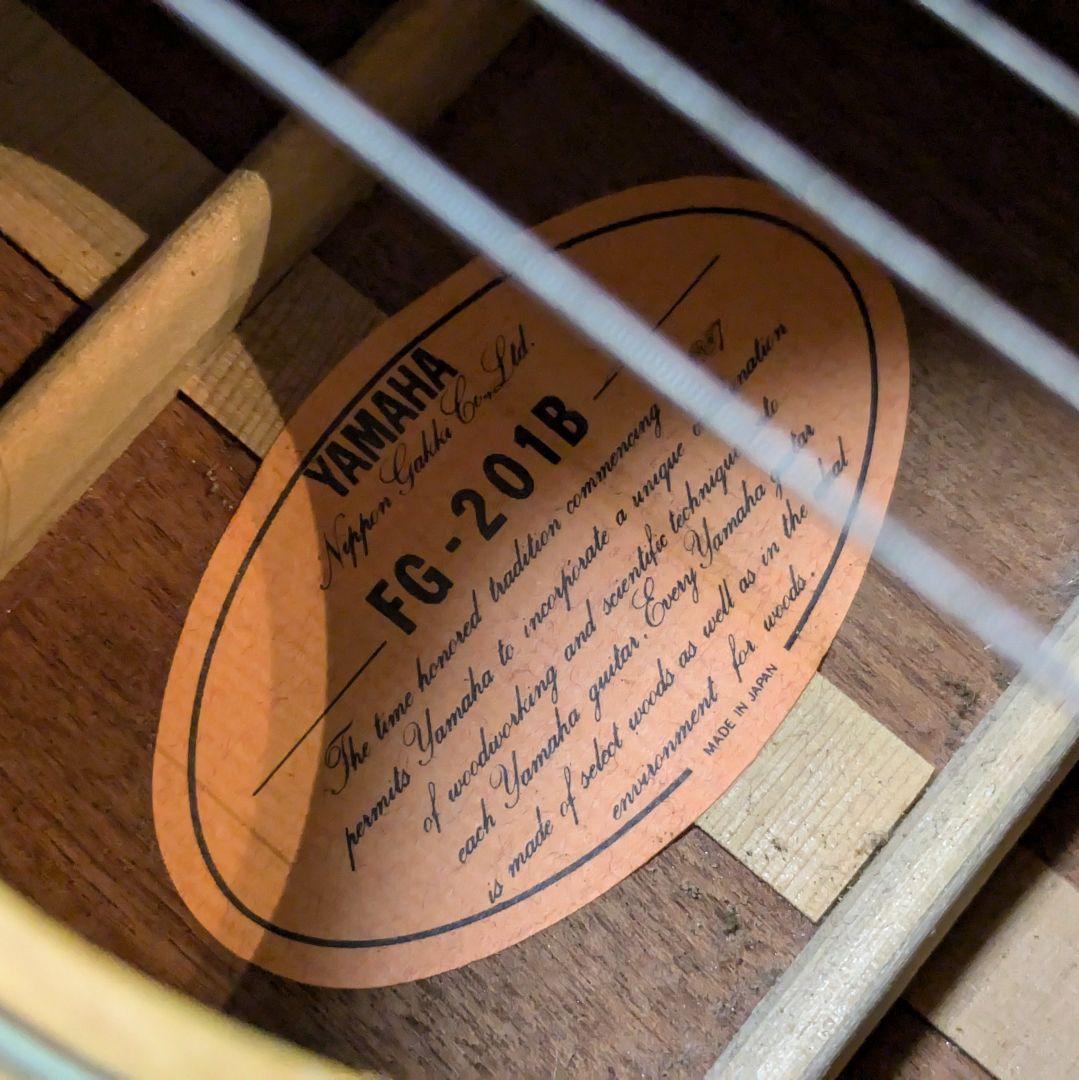 YAMAHA
Nippon Gakki Co., Ltd.
FG-201B
The time honored tradition commencing
permits Yamaha to incorporate a unique
of woodworking and scientific technique to
each Yamaha guitar. Every Yamaha guitar
is made of select woods as well as in the
environment for woods.
MADE IN JAPAN